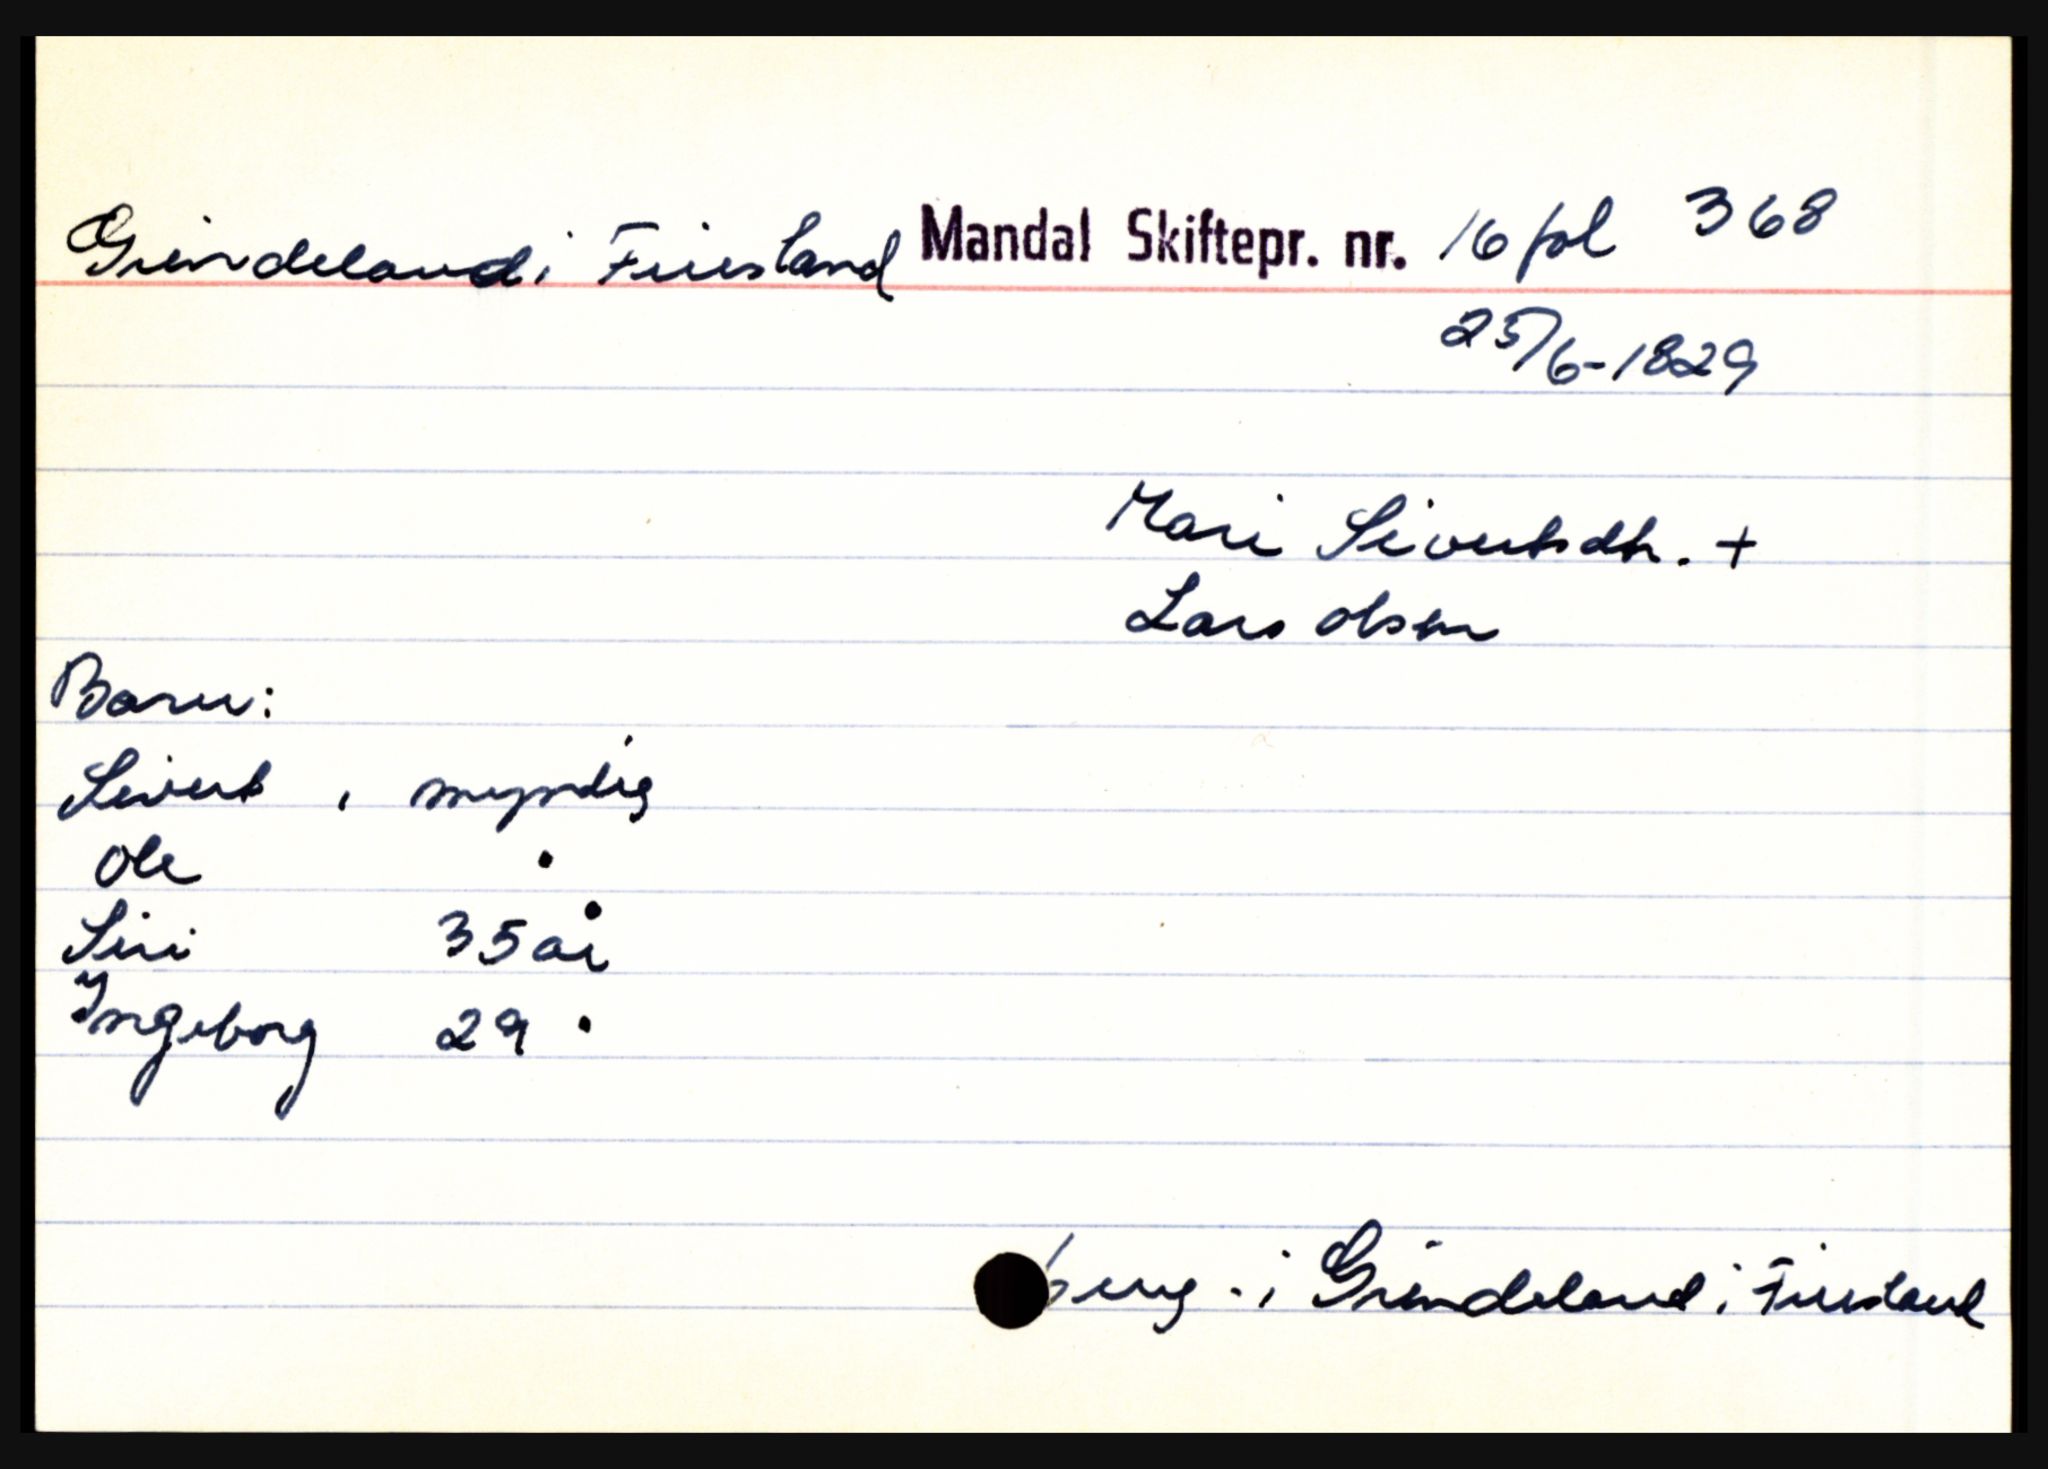 Grindeland i Finsland Mandal Skiftepr. nr. 16 fol 368
25/6-1829
Mari Sivertsdtr. +
Lars Olsen
Barn:
Sivert , myndig
Ole "
Siri 35 år
Ingeborg 29 "
brug i Grindeland i Finsland